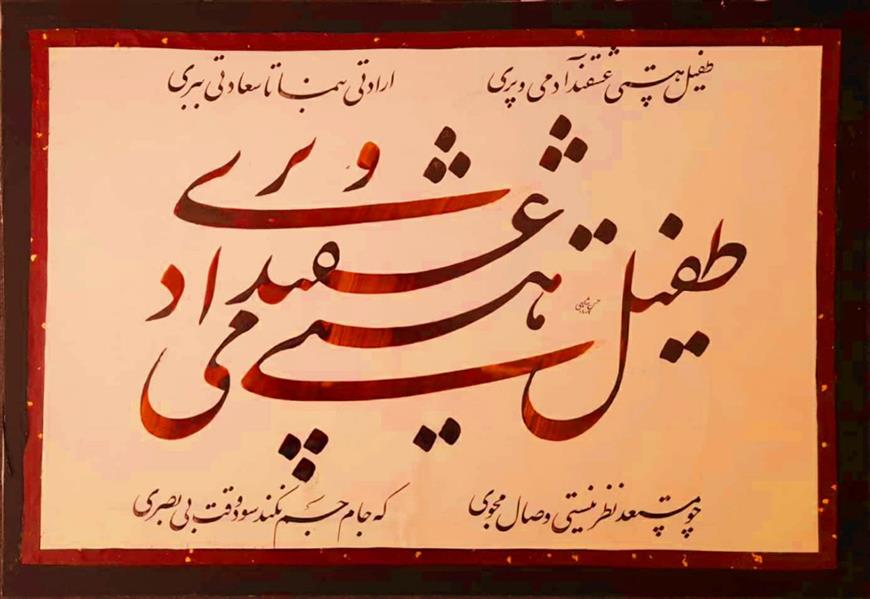 طفیل هستی عشقند آدمی و پری ارادتی بنما تا سعادتی ببری
طفیل هستی عشقند آدمی و پری
چو مستعد نظر نیستی وصال مجوی که جام جم نکند سود وقت بی بصری